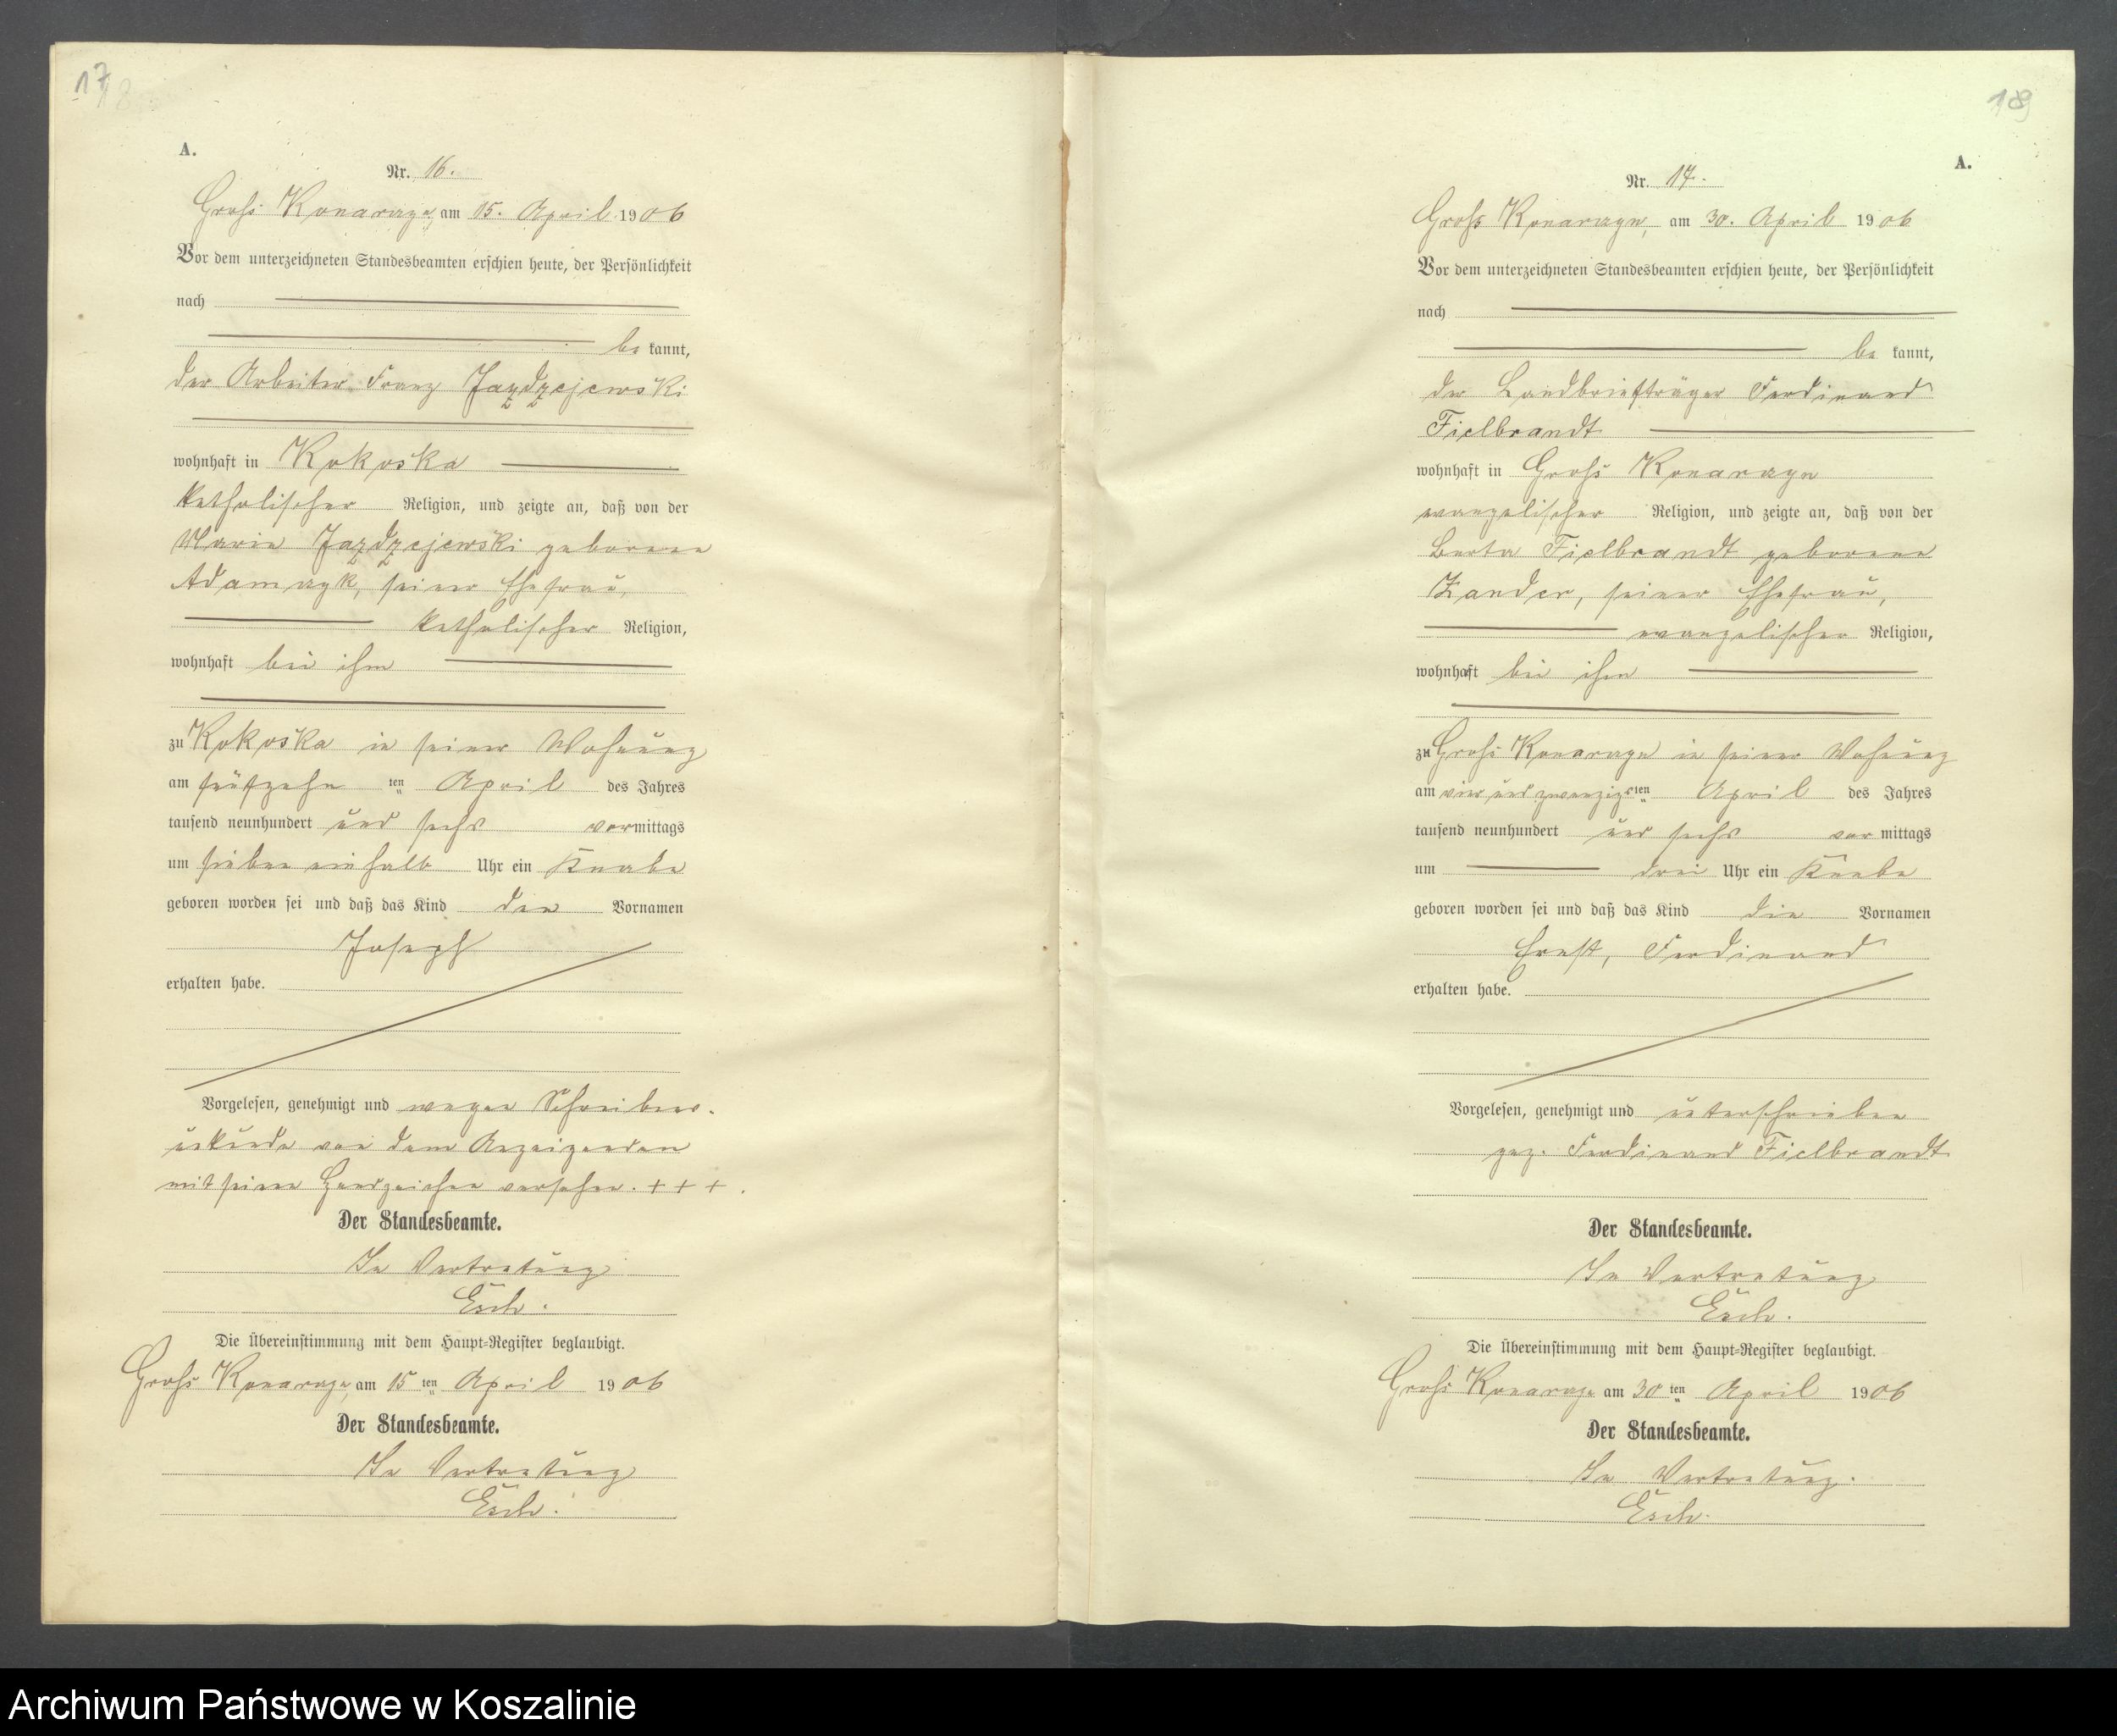 17
A.
Nr. 16.
Groß Konarzyn, am 15. April 1906
Vor dem unterzeichneten Standesbeamten erschien heute, der Persönlichkeit
nach
be kannt,
der Arbeiter Franz Jazdzejewski
wohnhaft in Kokoska
katholischer Religion, und zeigte an, daß von der
Marie Jazdzejewski geborene
Adamczyk, seiner Ehefrau,
katholischer Religion,
wohnhaft bei ihm
zu Kokoska in seiner Wohnung
am fünfzehn ten April des Jahres
tausend neunhundert und sechs vormittags
um sieben einhalb Uhr ein Knabe
geboren worden sei und daß das Kind den Vornamen
Joseph
erhalten habe.
Vorgelesen, genehmigt und wegen Schreibens-
unkunde von dem Anzeigenden
mit seinen Handzeichen versehen. + + + .
Der Standesbeamte.
In Vertretung
Esch.
Die Übereinstimmung mit dem Haupt-Register beglaubigt.
Groß Konarzyn, am 15 ten April 1906
Der Standesbeamte.
In Vertretung
Esch.
A.
Nr. 17.
Groß Konarzyn, am 30. April 1906
Vor dem unterzeichneten Standesbeamten erschien heute, der Persönlichkeit
nach
be kannt,
der Landbriefträger Ferdinand
Fielbrandt
wohnhaft in Groß Konarzyn
evangelischer Religion, und zeigte an, daß von der
Berta Fielbrandt geborene
Zander, seiner Ehefrau,
evangelischer Religion,
wohnhaft bei ihm
zu Groß Konarzyn in seiner Wohnung
am vier und zwanzigsten April des Jahres
tausend neunhundert und sechs vor mittags
um drei Uhr ein Knabe
geboren worden sei und daß das Kind die Vornamen
Ernst, Ferdinand
erhalten habe.
Vorgelesen, genehmigt und unterschrieben
gez. Ferdinand Fielbrandt
Der Standesbeamte.
In Vertretung
Esch.
Die Übereinstimmung mit dem Haupt-Register beglaubigt.
Groß Konarzyn am 30 ten April 1906
Der Standesbeamte.
In Vertretung.
Esch.
Archiwum Państwowe w Koszalinie